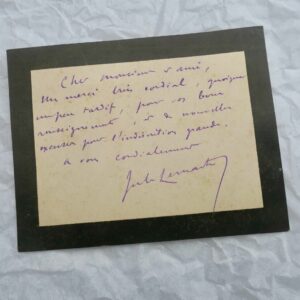 Cher monsieur & ami,
Un merci très cordial, quoique
un peu tardif, pour vos bons
renseignements, & de nouvelles
excuses pour l'indiscrétion grande.
à vous cordialement
Jules Lemaitre